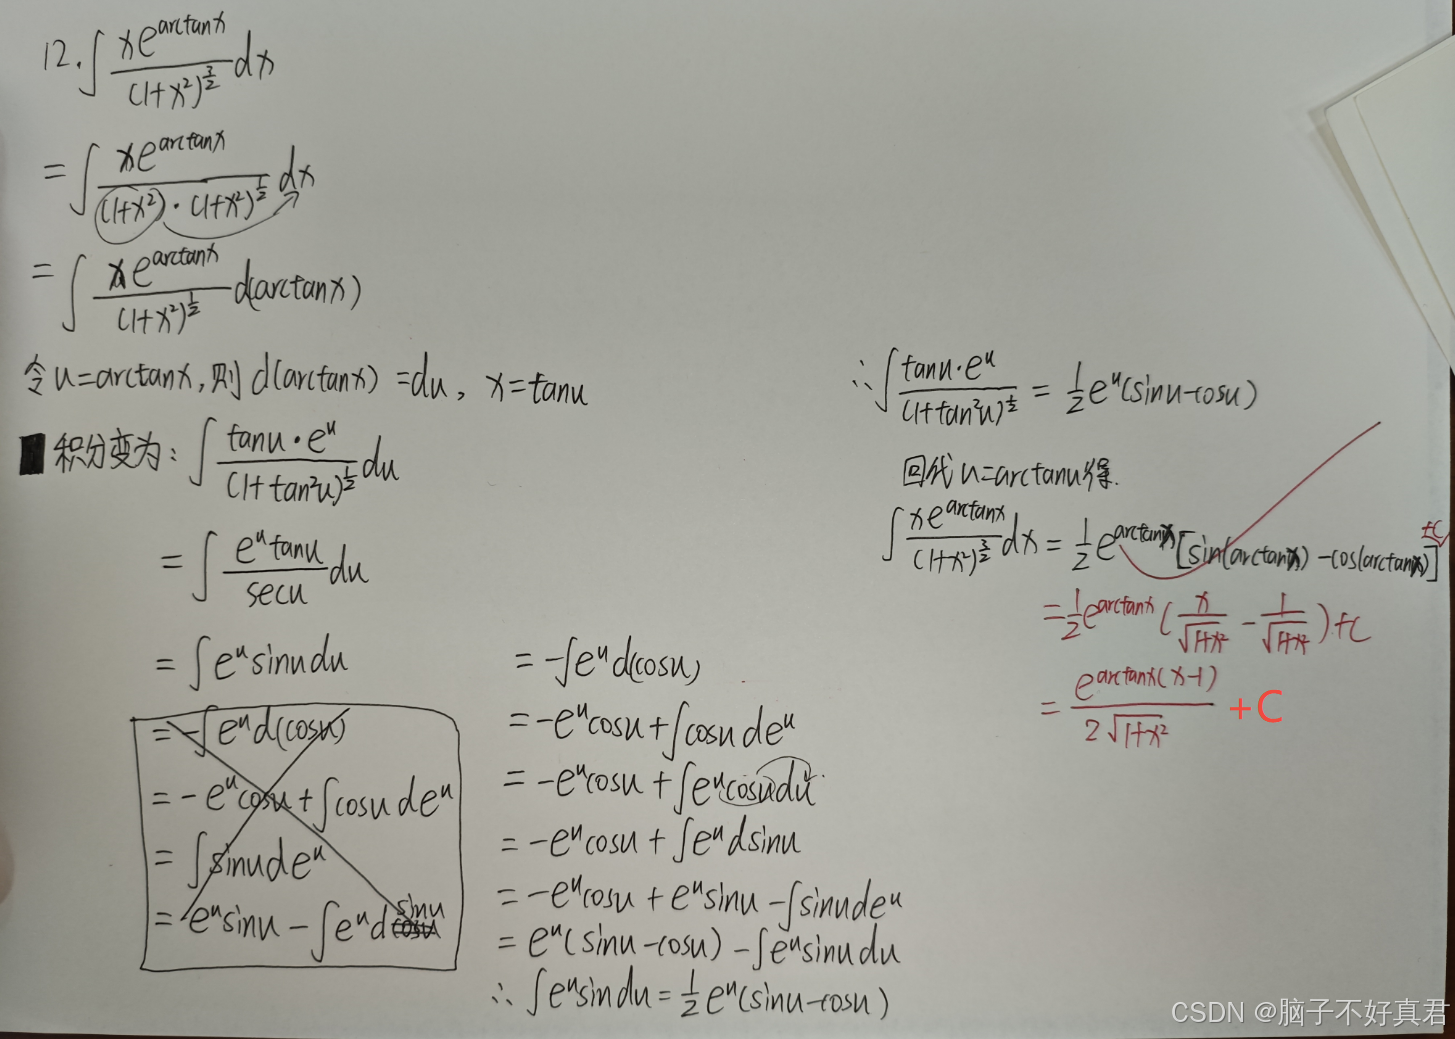 12. ∫ xe^{arctanx} / (1+x²)^{3/2} dx
= ∫ xe^{arctanx} / (1+x²)·(1+x²)^{1/2} dx
= ∫ xe^{arctanx} / (1+x²)^{1/2} d(arctanx)
令u=arctanx,则d(arctanx)=du, x=tanu
积分变为: ∫ tanu·e^u / (1+tan²u)^{1/2} du
= ∫ e^u tanu / secu du
= ∫ e^u sinu du
= -∫ e^u d(cosu)
= -e^u cosu + ∫ cosu de^u
= ∫ sinu de^u
= e^u sinu - ∫ e^u d sinu
= -∫ e^u d(cosu)
= -e^u cosu + ∫ cosu de^u
= -e^u cosu + ∫ e^u cosu du
= -e^u cosu + ∫ e^u d sinu
= -e^u cosu + e^u sinu - ∫ sinu de^u
= e^u (sinu-cosu) - ∫ e^u sinu du
∴ ∫ e^u sin du = 1/2 e^u (sinu-cosu)
∴ ∫ tanu·e^u / (1+tan²u)^{1/2} = 1/2 e^u (sinu-cosu)
回代u=arctanu得.
∫ xe^{arctanx} / (1+x²)^{3/2} dx = 1/2 e^{arctanx} [sin(arctanx) - cos(arctanx)] +C
= 1/2 e^{arctanx} ( x/√(1+x²) - 1/√(1+x²) ) +C
= e^{arctanx} (x-1) / 2√(1+x²) +C
CSDN @脑子不好真君